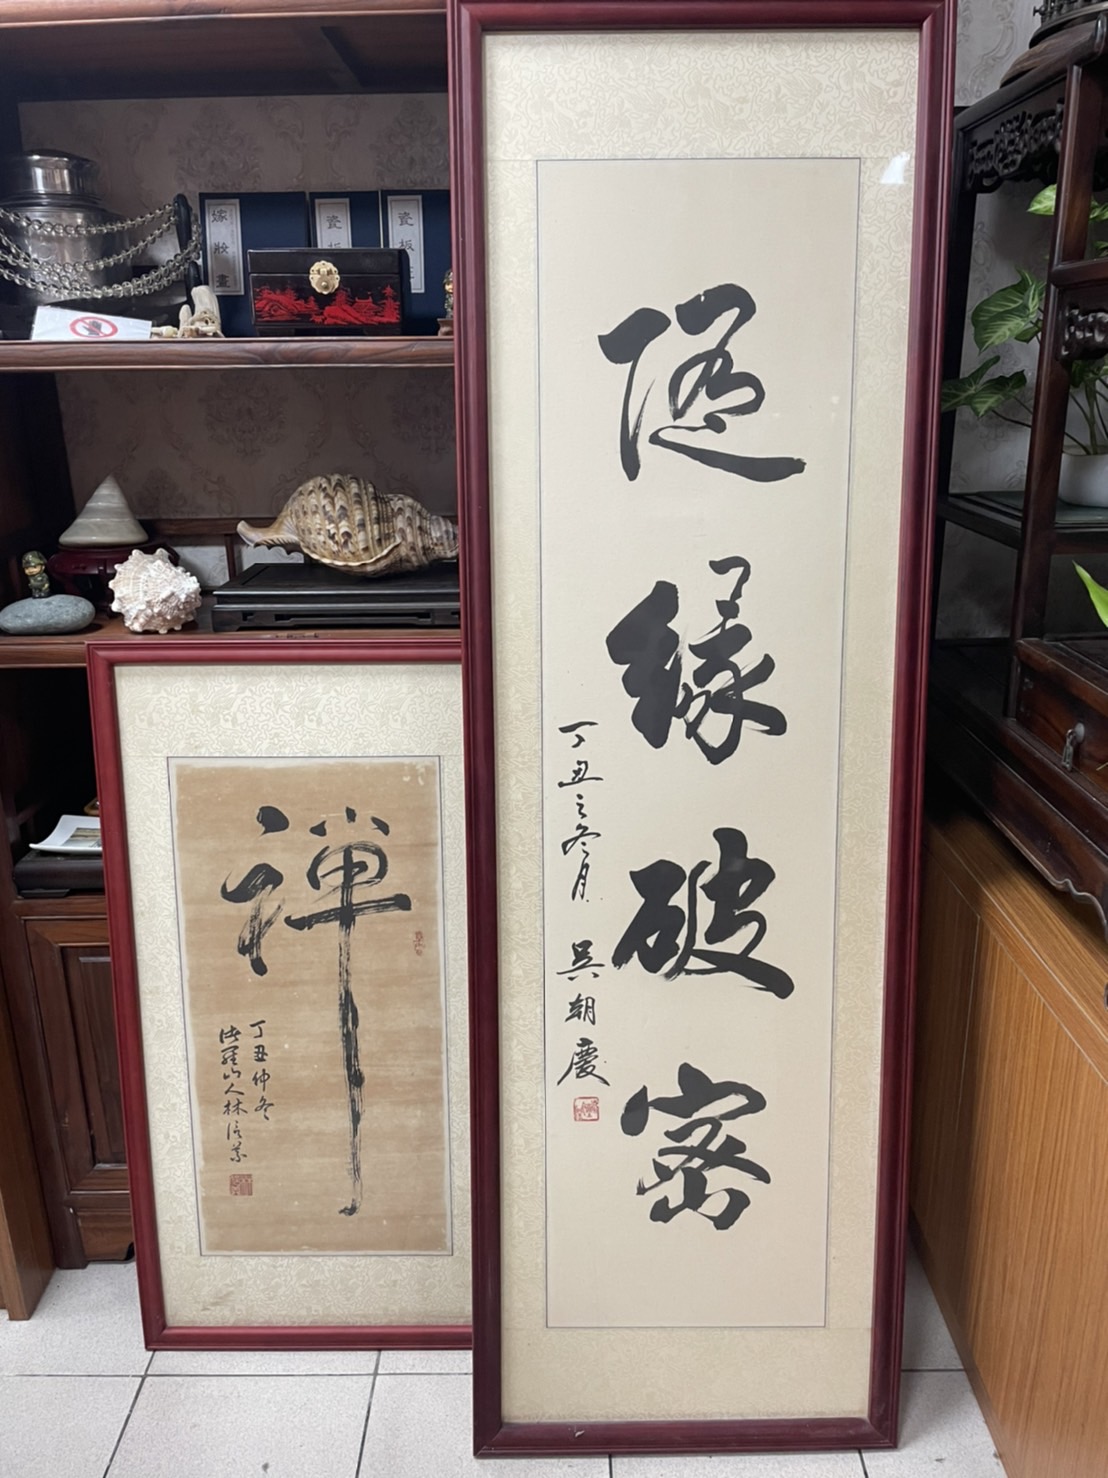 隨緣破密
丁丑之冬月 吳朝慶
禪
丁丑仲冬
山人林信
嫁妝畫
瓷板
瓷板